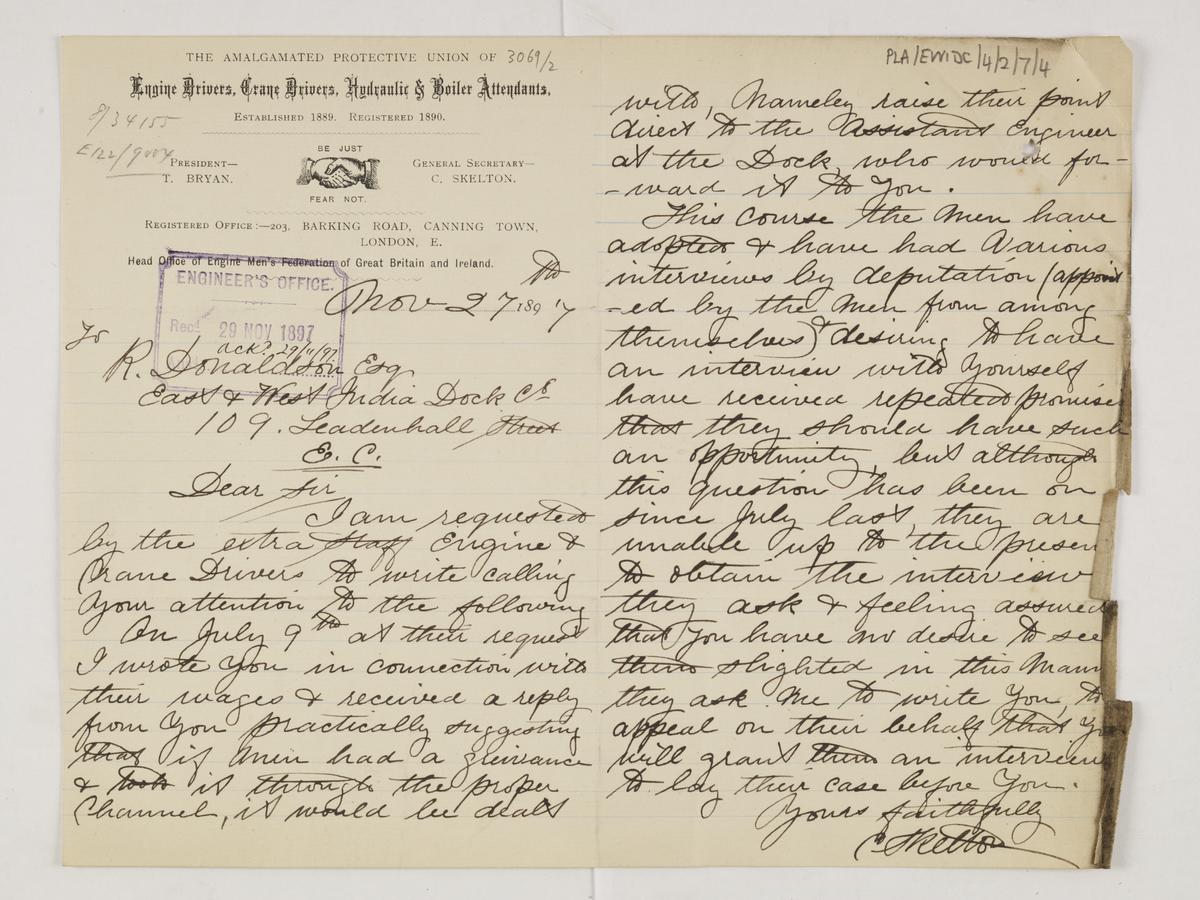 THE AMALGAMATED PROTECTIVE UNION OF 3069/2
Engine Drivers, Crane Drivers, Hydraulic & Boiler Attendants,
ESTABLISHED 1889. REGISTERED 1890.
8/34155
E122/9004
BE JUST
FEAR NOT.
PRESIDENT—
T. BRYAN.
GENERAL SECRETARY—
C. SKELTON.
REGISTERED OFFICE:—203, BARKING ROAD, CANNING TOWN,
LONDON, E.
Head Office of Engine Men's Federation of Great Britain and Ireland.
ENGINEER'S OFFICE.
Recd 29 NOV 1897
ack? 29/11/97
Nov 27th 1897
To
R. Donaldson Esq
East & West India Dock Co
109. Leadenhall Street
E. C.
Dear Sir
I am requested
by the extra staff Engine &
Crane Drivers to write calling
Your attention to the following
On July 9th at their request
I wrote You in connection with
their wages & received a reply
from You practically suggesting
that if Men had a grievance
& took it through the proper
Channel, it would be dealt
PLA/EWIDC/4/2/7/4
with, Nameley raise their point
direct to the Assistant Engineer
at the Dock, who would for-
-ward it to You.
This course the Men have
adopted & have had Various
interviews by deputation (appoint
-ed by the Men from among
themselves) & desiring to have
an interview with Yourself
have received repeated promises
that they should have such
an opportunity, but although
this question has been on
since July last, they are
unable up to the presen
to obtain the interview
they ask & feeling assured
that You have no desire to see
them slighted in this Mann
they ask Me to write You, to
appeal on their behalf that Yo
will grant them an interview
to lay their case before You.
Yours faithfully
C Skelton